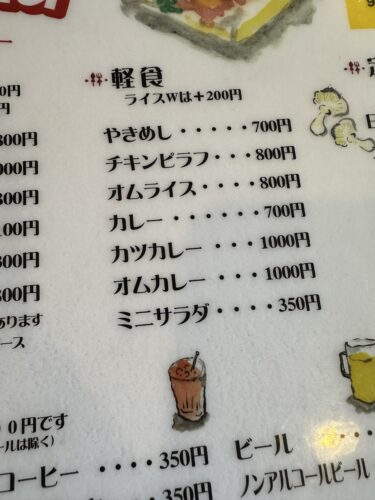 軽食
ライスWは＋200円
やきめし・・・・・700円
チキンピラフ・・・800円
オムライス・・・・800円
カレー・・・・・・700円
カツカレー・・・・1000円
オムカレー・・・・1000円
ミニサラダ・・・・350円
800円
800円
100円
800円
あります
ース
００円です
ールは除く）
コーヒー・・・・350円
・・・・350円
ビール・・・・
ノンアルコールビール